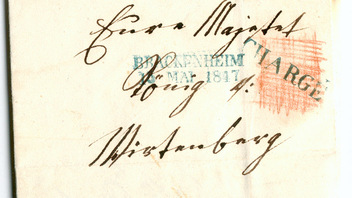 Eure Majetet
BRACKENHEIM
14 MAI 1817
CHARGÉ
König v:
Wirtenberg